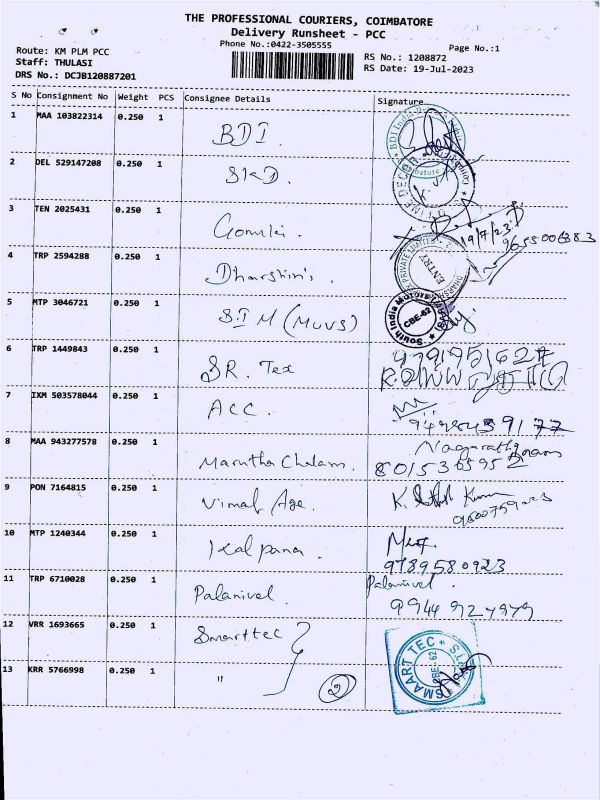 THE PROFESSIONAL COURIERS, COIMBATORE
Delivery Runsheet - PCC
Phone No.:0422-3505555
Page No.:1
Route: KM PLM PCC
Staff: THULASI
DRS No.: DCJB120887201
RS No.: 1208872
RS Date: 19-Jul-2023
S No Consignment No Weight PCS Consignee Details Signature
1 MAA 103822314 0.250 1 BDI
2 DEL 529147208 0.250 1
3 TEN 2025431 0.250 1
19/7/23
4 TRP 2594288 0.250 1 Dharshini. ENTRY
5 MTP 3046721 0.250 1 SIM (MUVS) South India Motors CBE-62
6 TRP 1449843 0.250 1 SR. Tex
7 IXM 503578044 0.250 1 ACC.
8 MAA 943277578 0.250 1 Marutha Chalam.
8015365952
9 PON 7164815 0.250 1 Vimal Age. K. Kumar
10 MTP 1240344 0.250 1 Kalpana.
9789580923
11 TRP 6710028 0.250 1 Palanivel. Palanivel.
9944927979
12 VRR 1693665 0.250 1 Smarttec SMAART TEC CBE-62
13 KRR 5766998 0.250 1 " 2